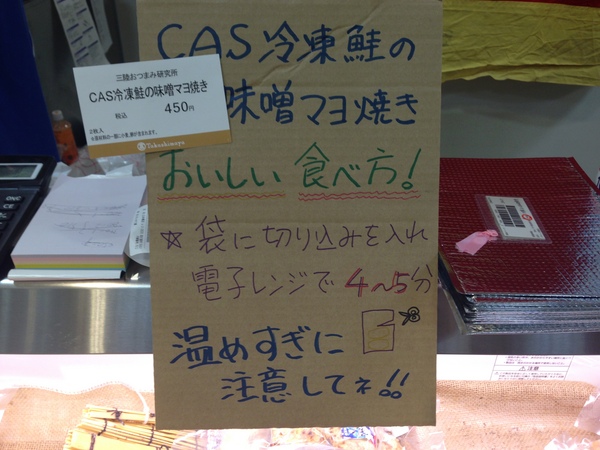 CAS冷凍鮭の
味噌マヨ焼き
三陸おつまみ研究所
CAS冷凍鮭の味噌マヨ焼き
税込 450円
2枚入
Takashimaya
おいしい 食べ方!
☆ 袋に切り込みを入れ
電子レンジで 4〜5分
温めすぎに
注意してネ!!
⚠注意